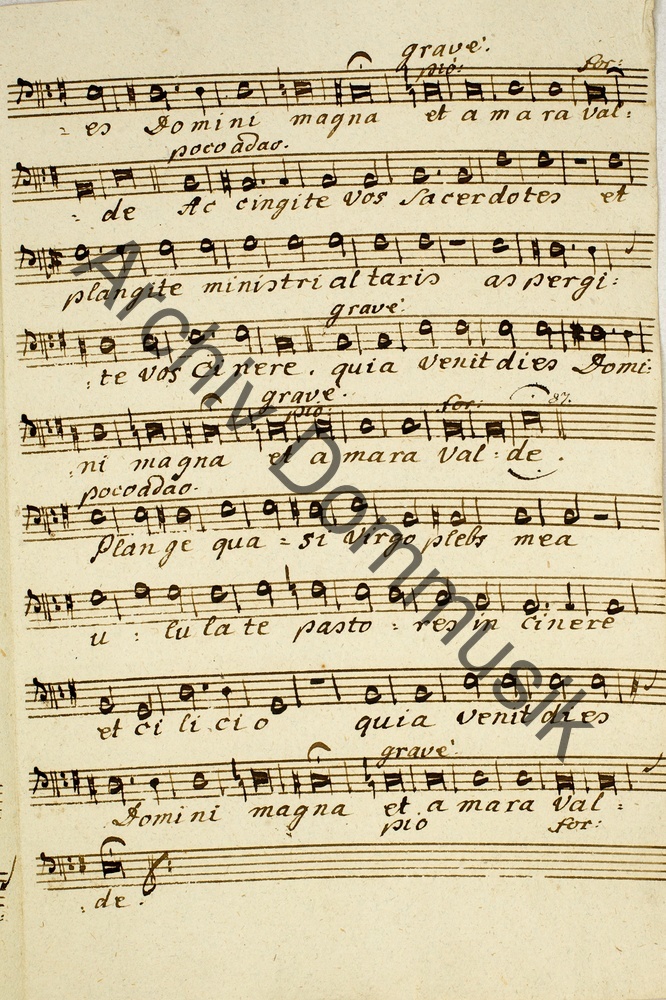 grave.
pio: for:
= es Domini magna et a ma ra Val:
poco adao.
: de Ac cingite vos Sacerdotes et
plangite ministri al taris as pergi:
grave:
: te vos Cinere. quia venit dies Domi:
grave.
pio: for:
ni magna et a mara Val: de.
poco adao.
Plan ge qua = si virgo plebs mea
u : lu la te pasto : res in cinere
et ci li cio quia venit dies
grave:
Domini magna et a mara Val =
pio for:
: de.
Archiv Dommusik